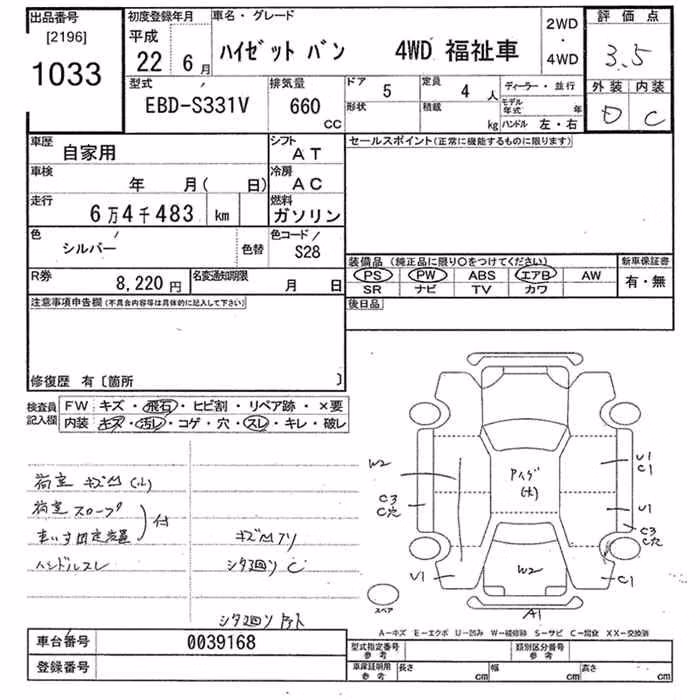 出品番号
[2196]
1033
初度登録年月
平成
22 6月
車名・グレード
ハイゼット バン 4WD 福祉車
2WD
・
4WD
評価点
3.5
外装 内装
D C
型式
EBD-S331V
排気量
660
CC
ドア 5
形状
定員 4 人
積載 kg
ディーラー・並行
モデル年式 年
ハンドル 左・右
車歴 自家用
シフト AT
車検 年 月( 日)
冷房 AC
走行 6万4千483 km
燃料 ガソリン
色 シルバー 色替
色コード S28
R券 8,220円
名変通知期限 月 日
セールスポイント(正常に機能するものに限ります)
装備品 (純正品に限り○をつけてください)
PS PW ABS エアB AW
SR ナビ TV カワ
新車保証書
有・無
後日品
注意事項申告欄(不具合内容等は具体的に記入して下さい)
修復歴 有〔箇所 〕
検査員記入欄
FW キズ・飛石・ヒビ割・リペア跡・×要
内装 キズ・汚レ・コゲ・穴・スレ・キレ・破レ
荷室 キズ凹(小)
荷室 スロープ
車いす固定装置
付
ハンドルスレ
キズ凹アリ
シタ廻り C
シタ廻り
W2
C3
C穴
U1
U1
C1
U1
C3
C穴
C1
W2
A1
スペア
A−キズ E−エクボ U−凹み W−補修跡 S−サビ C−腐食 XX−交換済
車台番号 0039168
登録番号
型式指定番号
参考
類別区分番号
参考
車庫証明用
参考
長さ cm 幅 cm 高さ cm